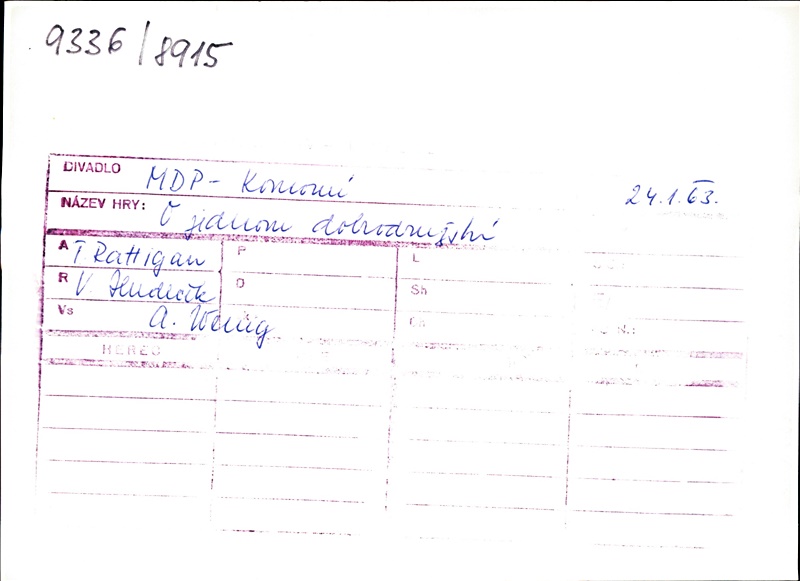 9336/8915
DIVADLO MDP - Komorní 24.1.63.
NÁZEV HRY: O jednom dobrodružství
A T Rattigan P L
R V. Hudeček O Sh
Vs A. Wenig
HEREC